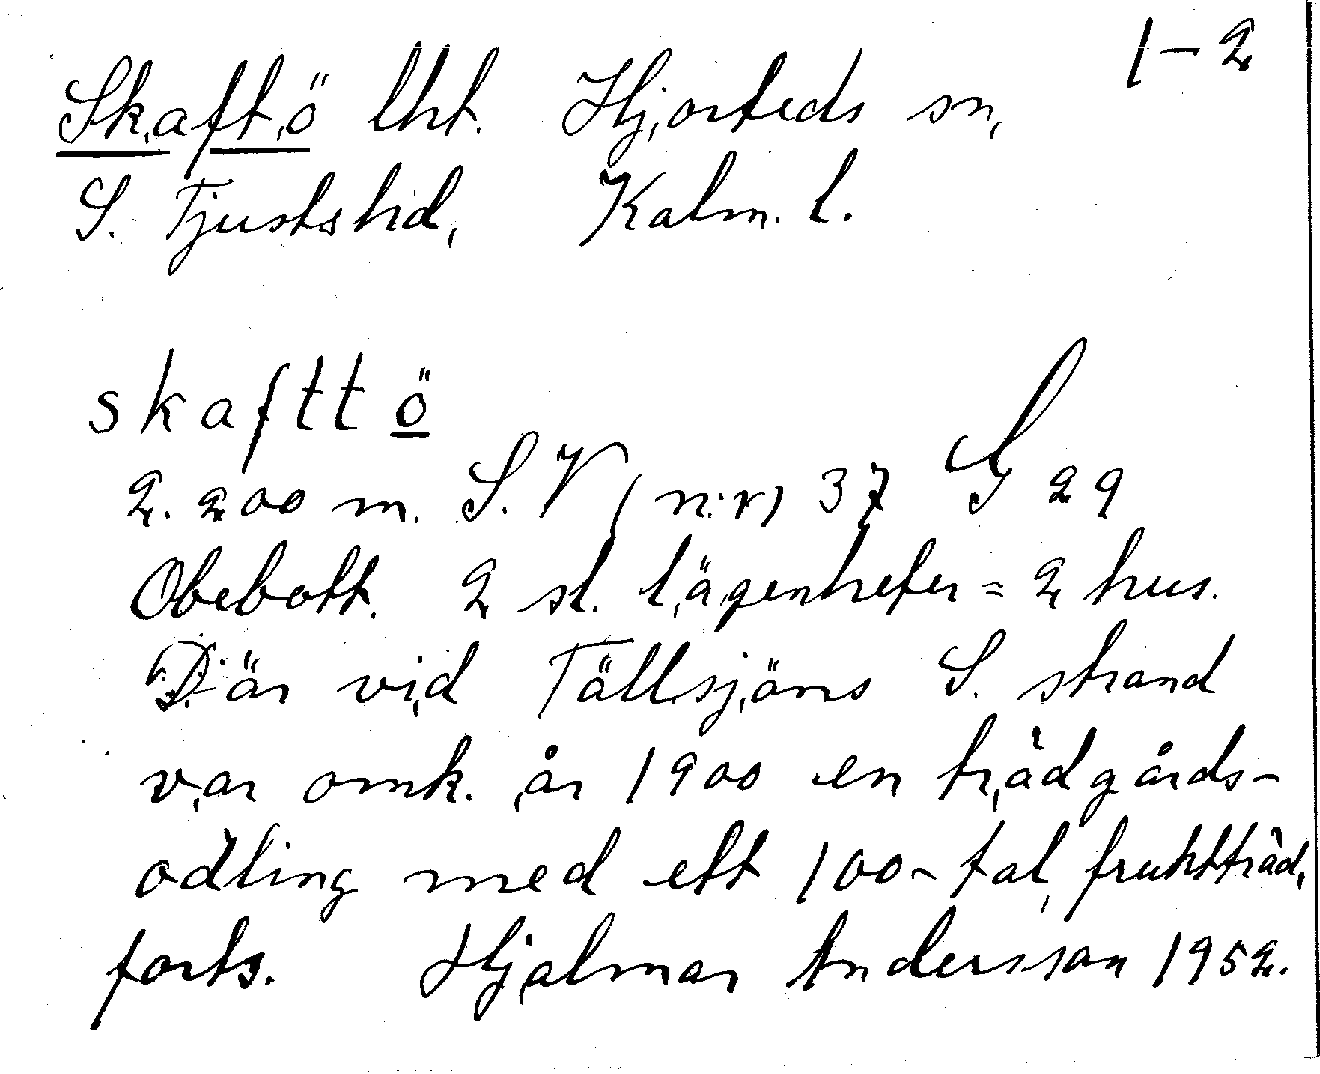 1-2
Skaftö lht. Hjorteds sn,
S. Tjusts hd, Kalm. l.
skafttö
2. 200 m. S.V (n:r) 37 G 29
Obebott. 2 st. lägenheter = 2 hus.
Där vid Tällsjöns S. strand
var omk. år 1900 en trädgårds-
odling med ett 100-tal fruktträd.
forts. Hjalmar Andersson 1952.